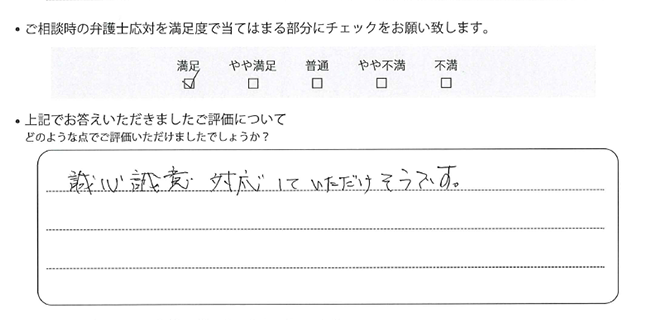 ・ご相談時の弁護士応対を満足度で当てはまる部分にチェックをお願い致します。
満足 やや満足 普通 やや不満 不満
☑ □ □ □ □
・上記でお答えいただきましたご評価について
どのような点でご評価いただけましたでしょうか？
誠心誠意 対応していただけそうです。